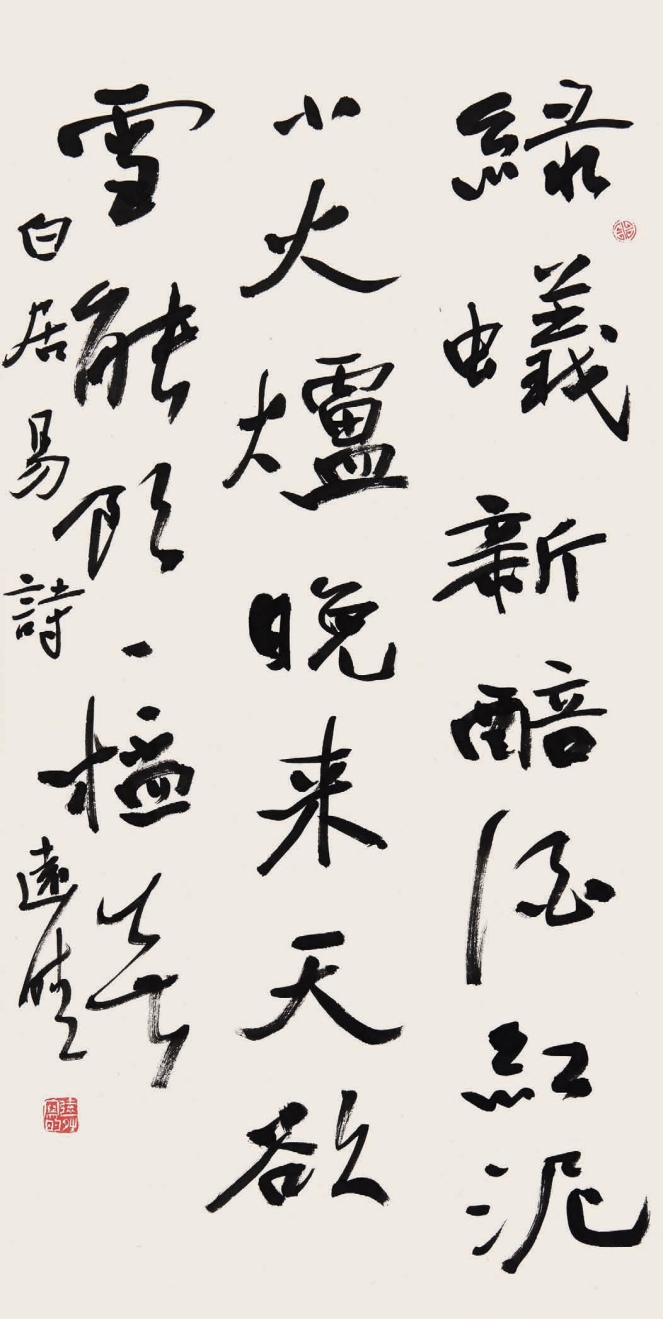 綠蟻新醅酒紅泥
小火爐晚来天欲
雪能飲一榼無
白居易詩
遠